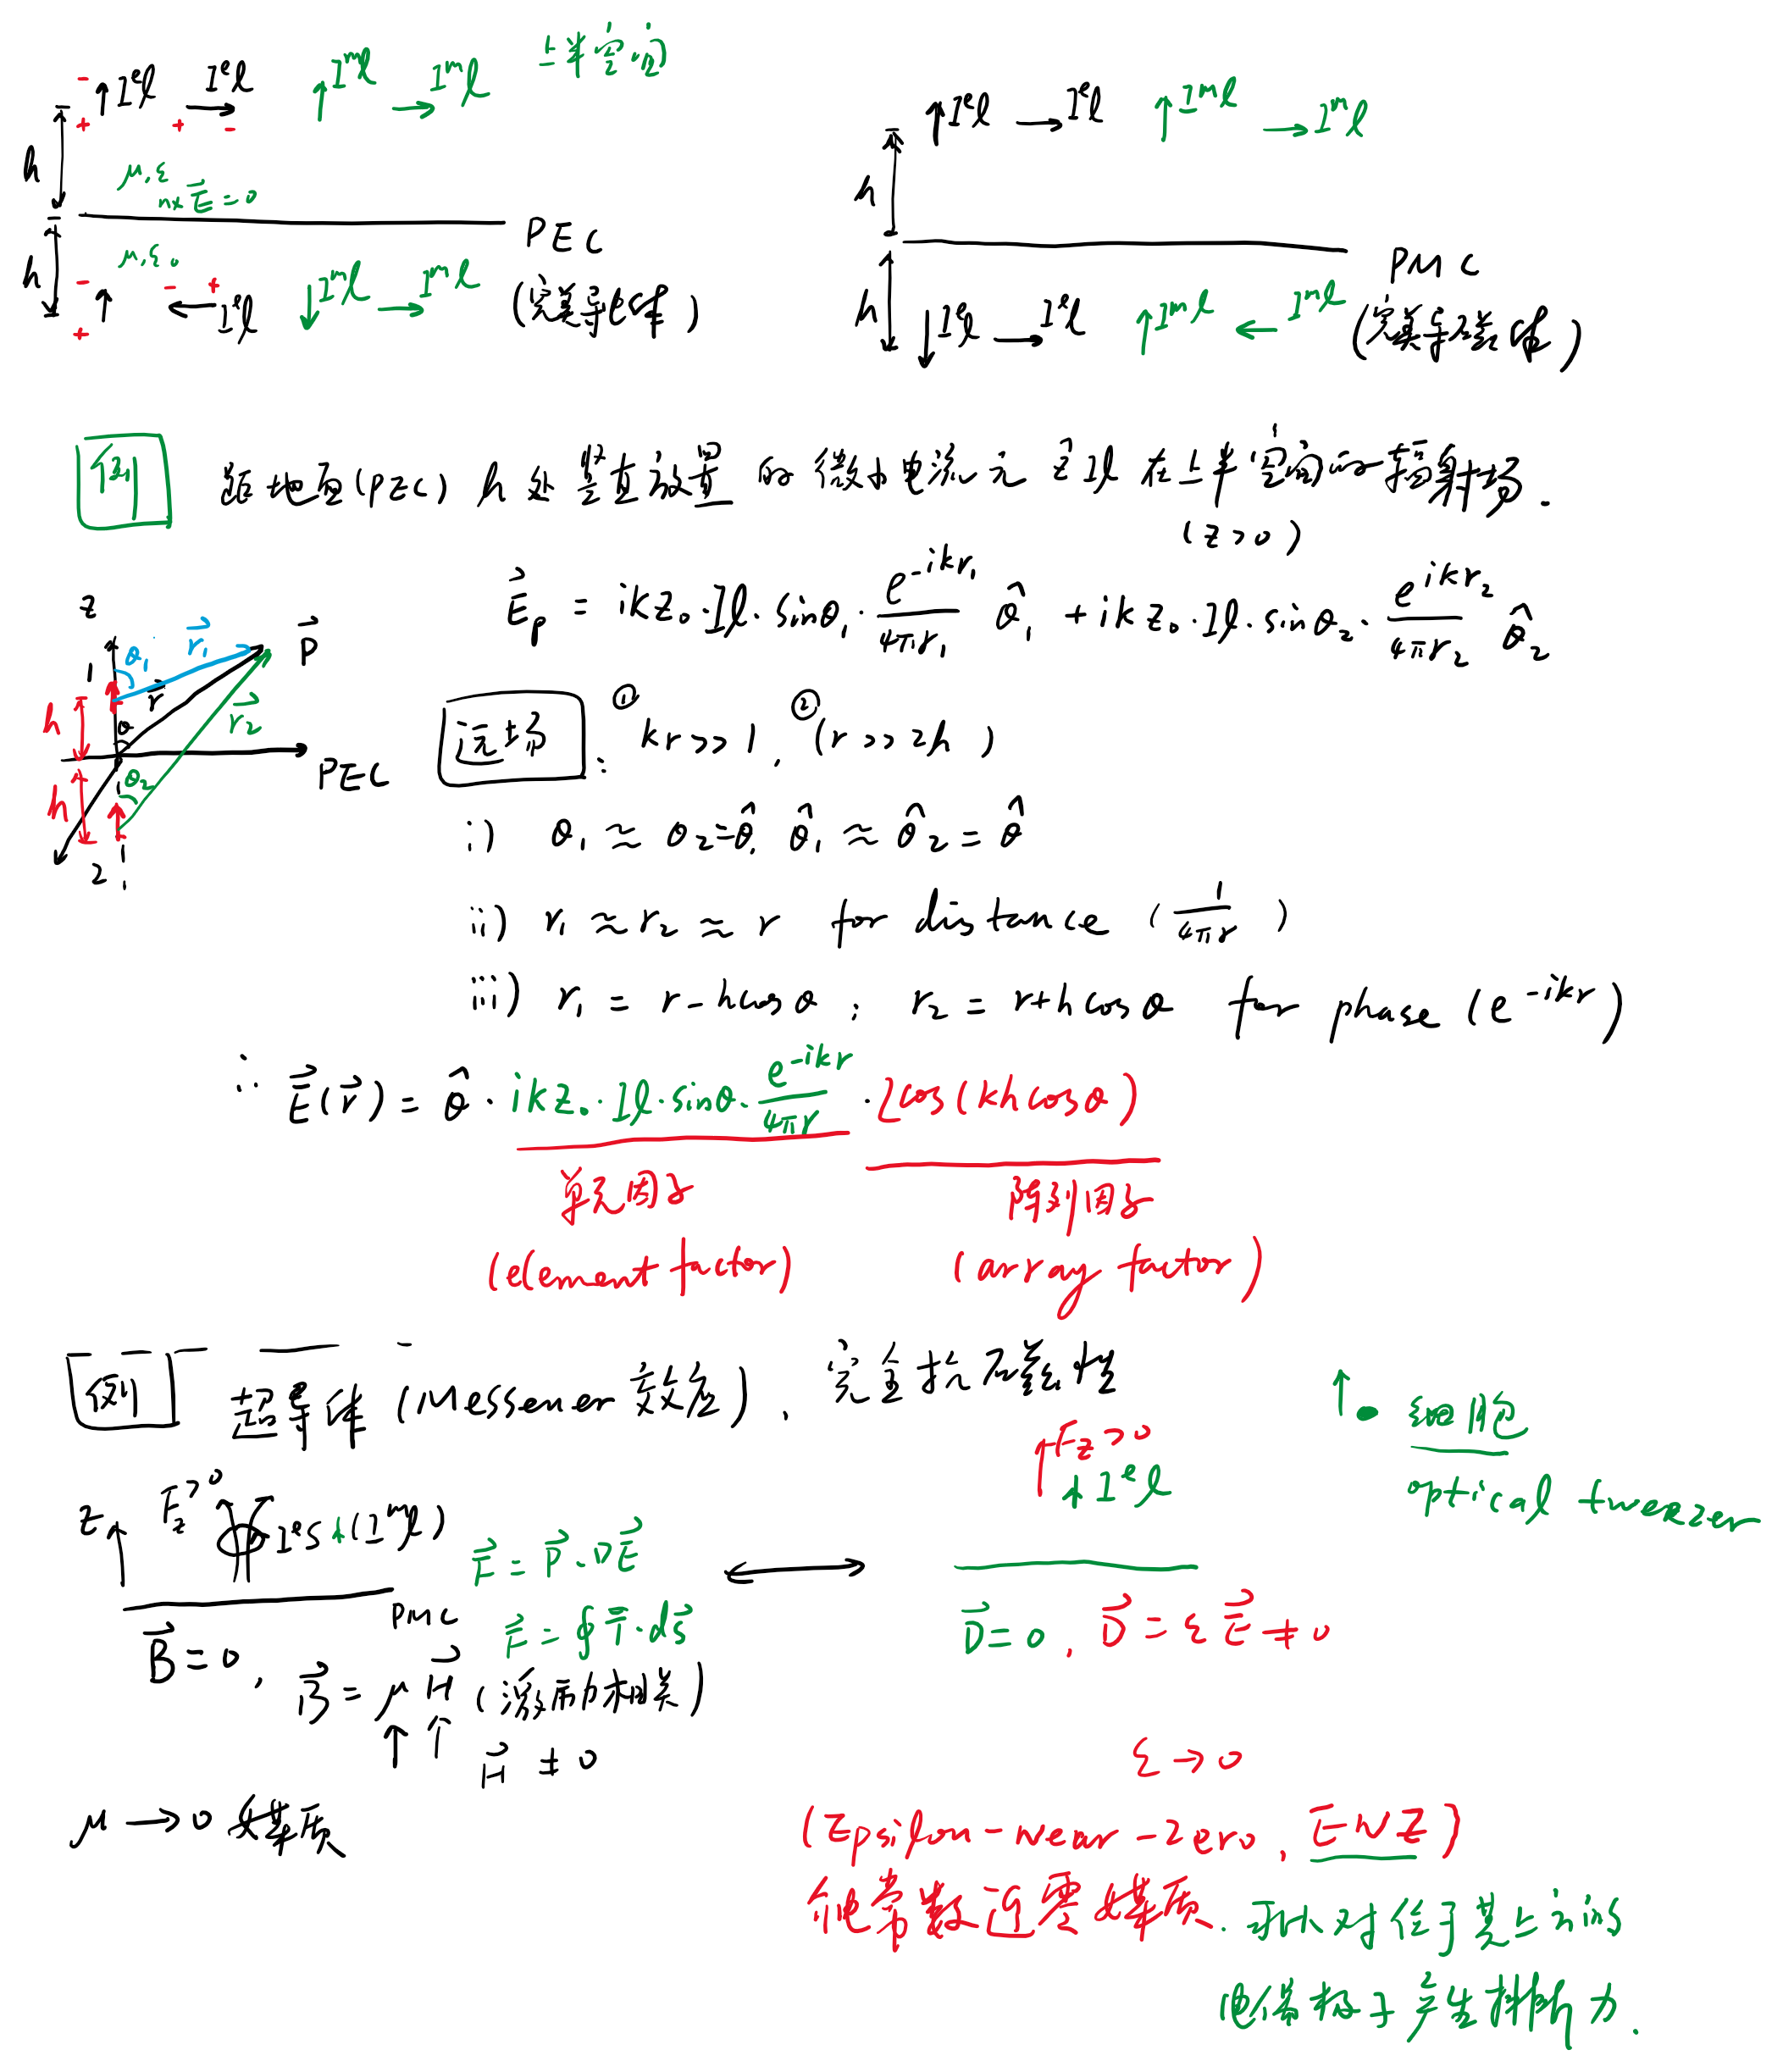 - ↑Iᵉl → Iᵉl ↑Iᵐl → Iᵐl 上半空间
+ + -
h
μ, ε
n×E⃗ = 0
PEC
(完美导电体)
h
μ, ε₀
- ↑ - ← + Iᵉl ↓Iᵐl → Iᵐl
+
↑Iᵉl → Iᵉl ↑Iᵐl → Iᵐl
h
PMC
(完美导磁体)
h
↓Iᵉl → Iᵉl ↑Iᵐl ← Iᵐl
例 距地面(PEC) h 处竖直放置的微小电流元 ẑIl 在上半空间的辐射场.
(z>0)
E⃗p = ikz₀·Il·sinθ₁·e^{-ikr₁}/4πr₁ θ̂₁ + ikz₀·Il·sinθ₂·e^{ikr₂}/4πr₂ θ̂₂
z
1 θ₁ r⃗₁ P⃗
h r⃗ r⃗₂
θ
PEC
h θ₂
2
远场: ① kr>>1, ② (r>>2h)
i) θ₁ ≈ θ₂ = θ, θ̂₁ ≈ θ̂₂ = θ̂
ii) r₁ ≈ r₂ ≈ r for distance (1/4πr)
iii) r₁ = r - hcosθ ; r₂ = r+hcosθ for phase (e^{-ikr})
∴ E⃗(r⃗) = θ̂ · ikz₀·Il·sinθ·e^{-ikr}/4πr · 2cos(kh cosθ)
单元因子 阵列因子
(element factor) (array factor)
例 超导体 (Messener 效应), 完全抗磁性
↑Fz>0
↑Iᵉl
↑• 细胞
optical tweezer
z↑ Fz>0 IᵉS ↑(Iᵐl)
PMC
F⃗ = P⃗·∇E⃗
F⃗ = ∮T̿·ds⃗
↔
D⃗=0, D⃗ = εE⃗ ≠ 0
B⃗=0, B⃗ = μH⃗ (激励相关)
↑ ↑ H⃗ ≠ 0
μ → 0 媒质
ε → 0
(Epsilon-near-zero, ENZ)
介电常数近零媒质. 可以对位于其上方的
电偶极子产生排斥力.